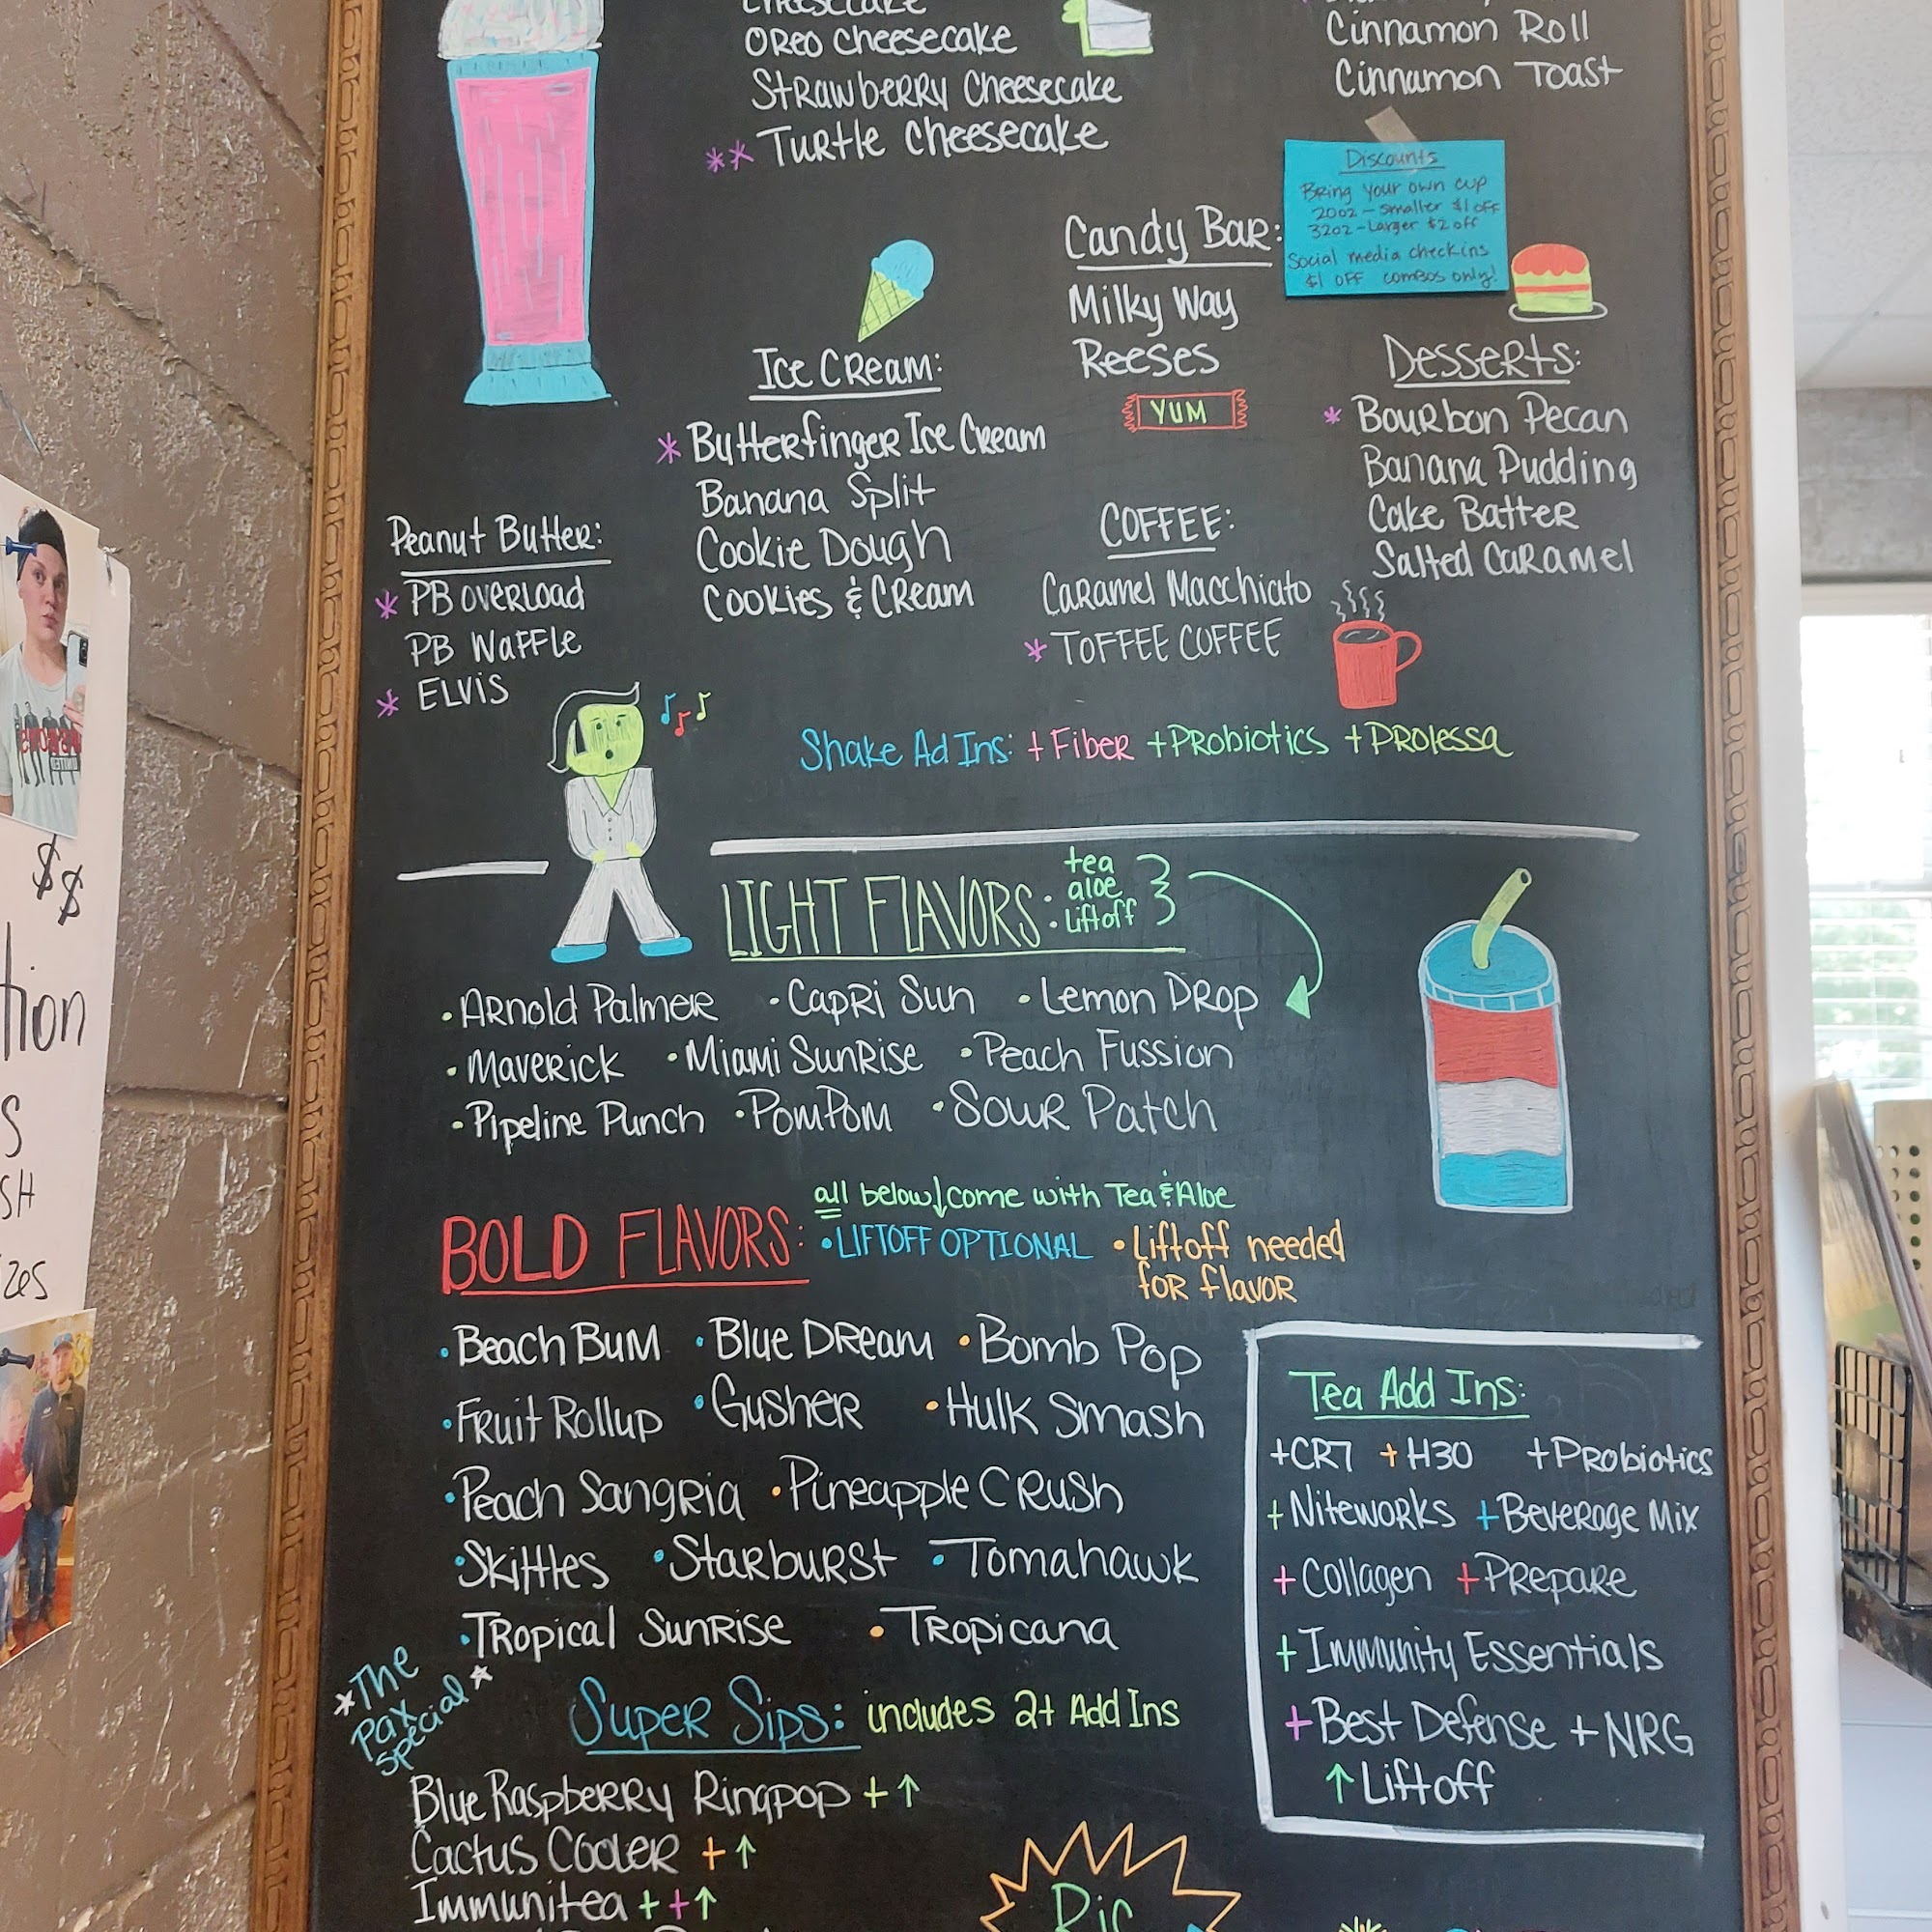 Cheesecake
Oreo Cheesecake
Strawberry Cheesecake
** Turtle Cheesecake
Cinnamon Roll
Cinnamon Toast
Discounts
Bring your own cup
20oz - smaller $1 off
32oz - Larger $2 off
Social media checkins
$1 OFF combos only!
Candy Bar:
Milky Way
Reeses
YUM
Ice Cream:
* Butterfinger Ice Cream
Banana Split
Cookie Dough
Cookies & Cream
Desserts:
* Bourbon Pecan
Banana Pudding
Cake Batter
Salted Caramel
Peanut Butter:
* PB Overload
PB Waffle
* ELVIS
COFFEE:
Caramel Macchiato
* TOFFEE COFFEE
Shake Ad Ins: +Fiber +Probiotics +Prolessa
LIGHT FLAVORS: tea
aloe
Liftoff
•Arnold Palmer •Capri Sun •Lemon Drop
•Maverick •Miami Sunrise •Peach Fussion
•Pipeline Punch •PomPom •Sour Patch
all below↓come with Tea & Aloe
BOLD FLAVORS: •LIFTOFF OPTIONAL •Liftoff needed
for flavor
•Beach Bum •Blue Dream •Bomb Pop
•Fruit Rollup •Gusher •Hulk Smash
•Peach Sangria •Pineapple Crush
•Skittles •Starburst •Tomahawk
•Tropical Sunrise •Tropicana
Tea Add Ins:
+CR7 +H30 +Probiotics
+Niteworks +Beverage Mix
+Collagen +Prepare
+Immunity Essentials
+Best Defense +NRG
↑Liftoff
*The
Pax
Special*
Super Sips: includes 2+ Add Ins
Blue Raspberry Ringpop +↑
Cactus Cooler +↑
Immunitea ++↑
$$